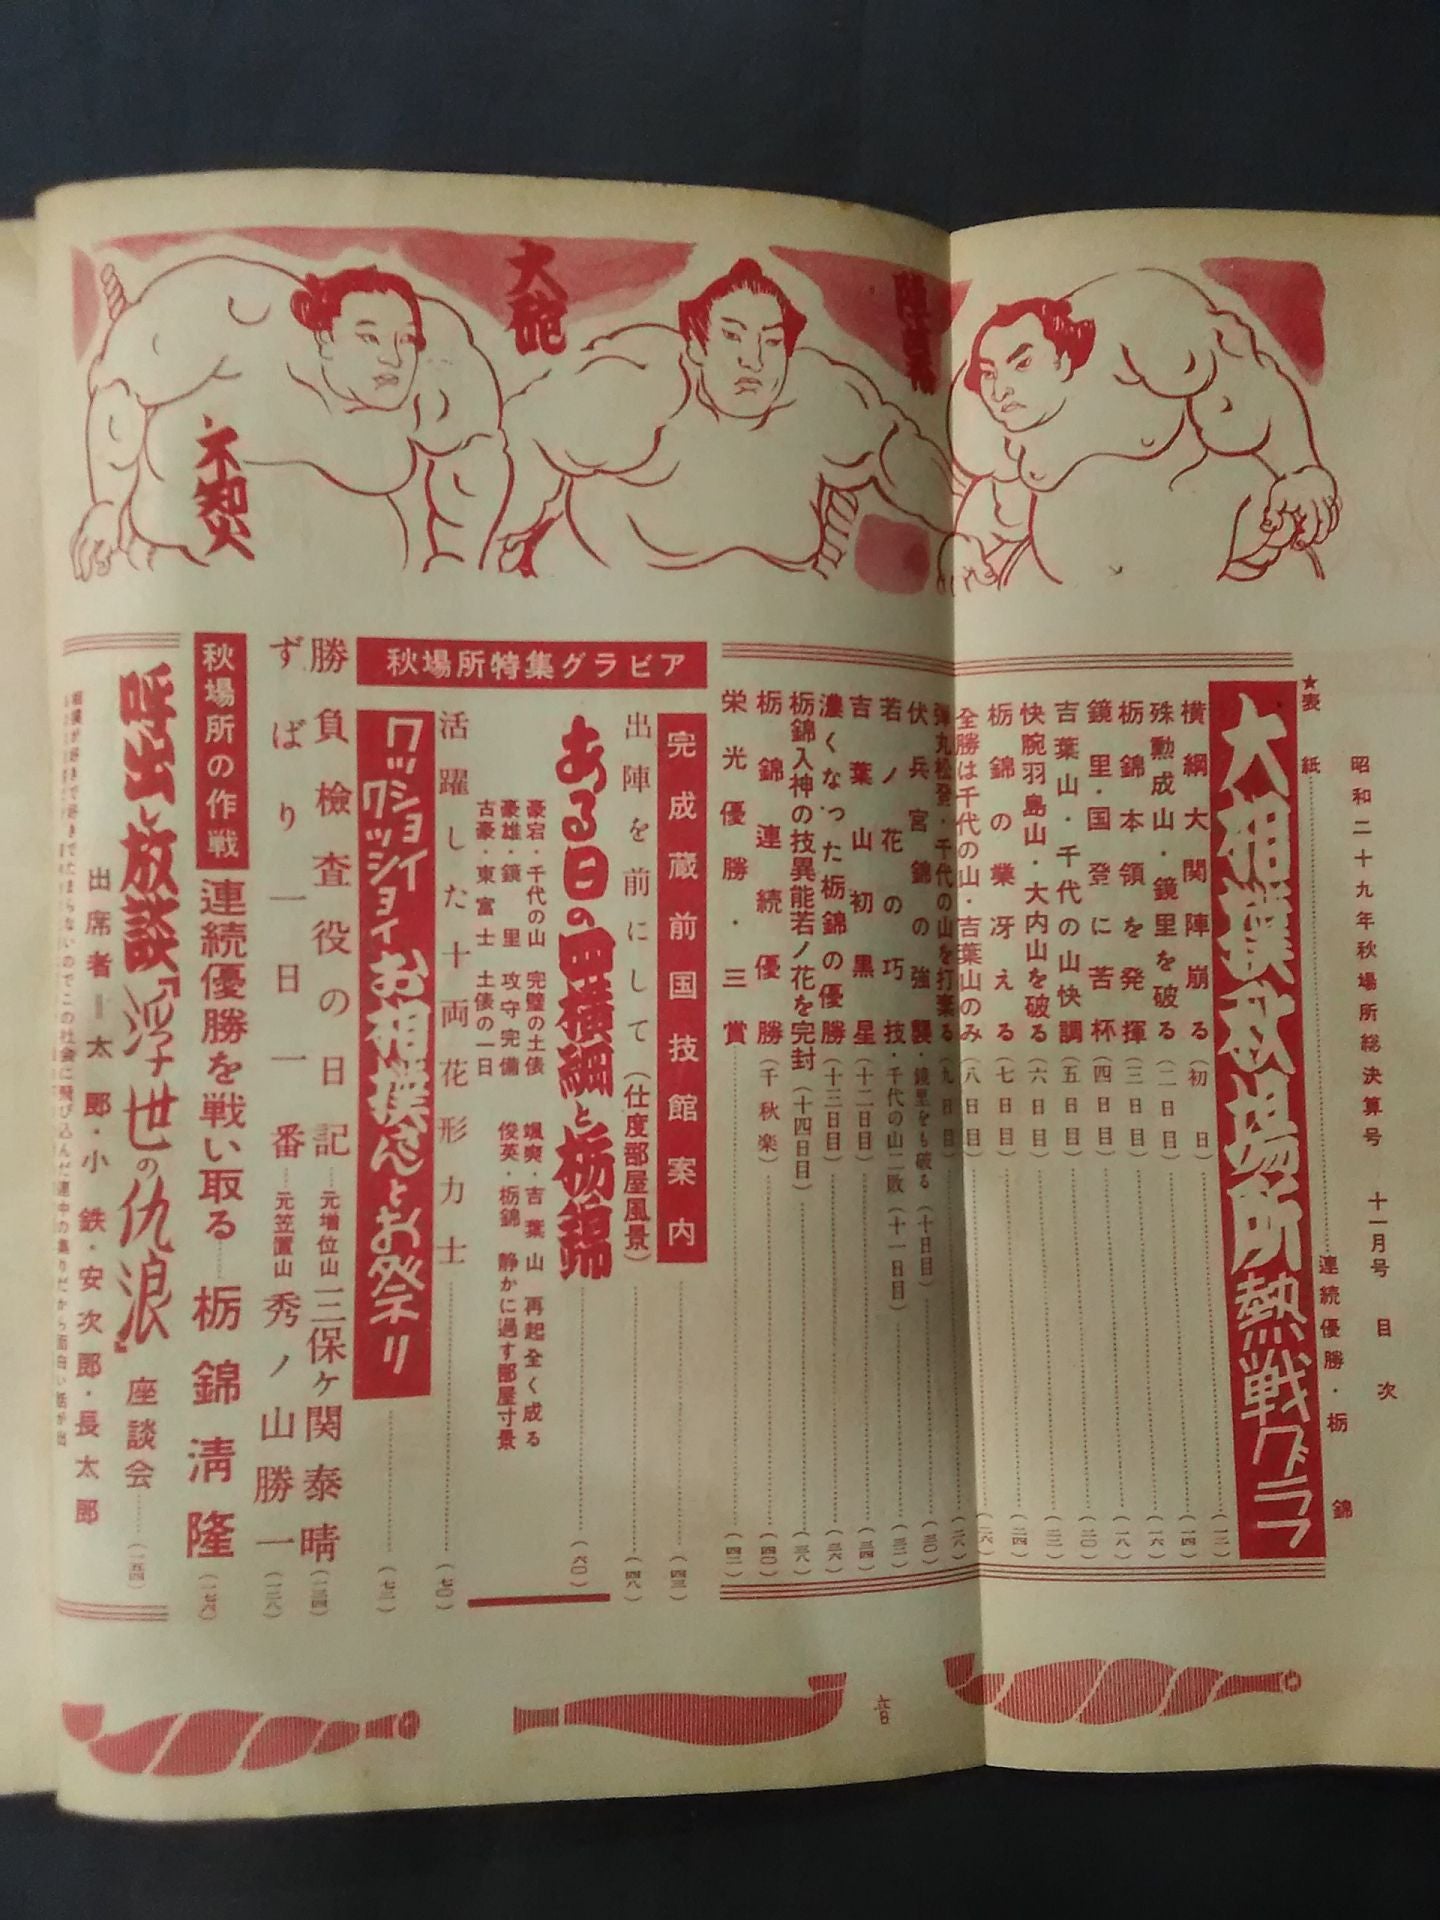 昭和二十九年秋場所総決算号 十一月号 目次
★表紙 連続優勝・栃錦
大相撲秋場所熱戦グラフ
横綱大関陣崩る(初日) (一二)
殊勲成山・鏡里を破る(二日目) (一四)
栃錦本領を発揮(三日目) (一六)
鏡里・国登に苦杯(四日目) (一八)
吉葉山・千代の山快調(五日目) (二〇)
快腕羽島山・大内山を破る(六日目) (二二)
栃錦の業冴える(七日目) (二四)
全勝は千代の山・吉葉山のみ(八日目) (二六)
弾丸松登・千代の山を打棄る(九日目) (二八)
伏兵宮錦の強襲・鏡里をも破る(十日目) (三〇)
若ノ花の巧技・千代の山二敗(十一日目) (三二)
吉葉山初黒星(十二日目) (三四)
濃くなった栃錦の優勝(十三日目) (三六)
栃錦入神の技異能若ノ花を完封(十四日目) (三八)
栃錦連続優勝(千秋楽) (四〇)
栄光優勝・三賞 (四二)
秋場所特集グラビア
完成蔵前国技館案内 (四三)
出陣を前にして(仕度部屋風景) (四八)
ある日の四横綱と栃錦 (六〇)
豪宕・千代の山 完璧の土俵
豪雄・鏡里 攻守完備
古豪・東富士 土俵の一日
颯爽・吉葉山 再起全く成る
俊英・栃錦 静かに過す部屋寸景
活躍した十両花形力士 (七〇)
ワッショイワッショイお相撲さんとお祭り (七二)
勝負檢査役の日記 元増位山 三保ケ関泰晴 (一三四)
ずばり一日一番 元笠置山 秀ノ山勝一 (一二八)
秋場所の作戦
連続優勝を戦い取る 栃錦清隆 (一七六)
呼出し放談『浮世の仇浪』座談会 (一五四)
出席者＝太郎・小鉄・安次郎・長太郎
相撲が好きで好きでたまらないのでこの社会に飛び込んだ連中の集りだから面白い話が出
大砲
不知火